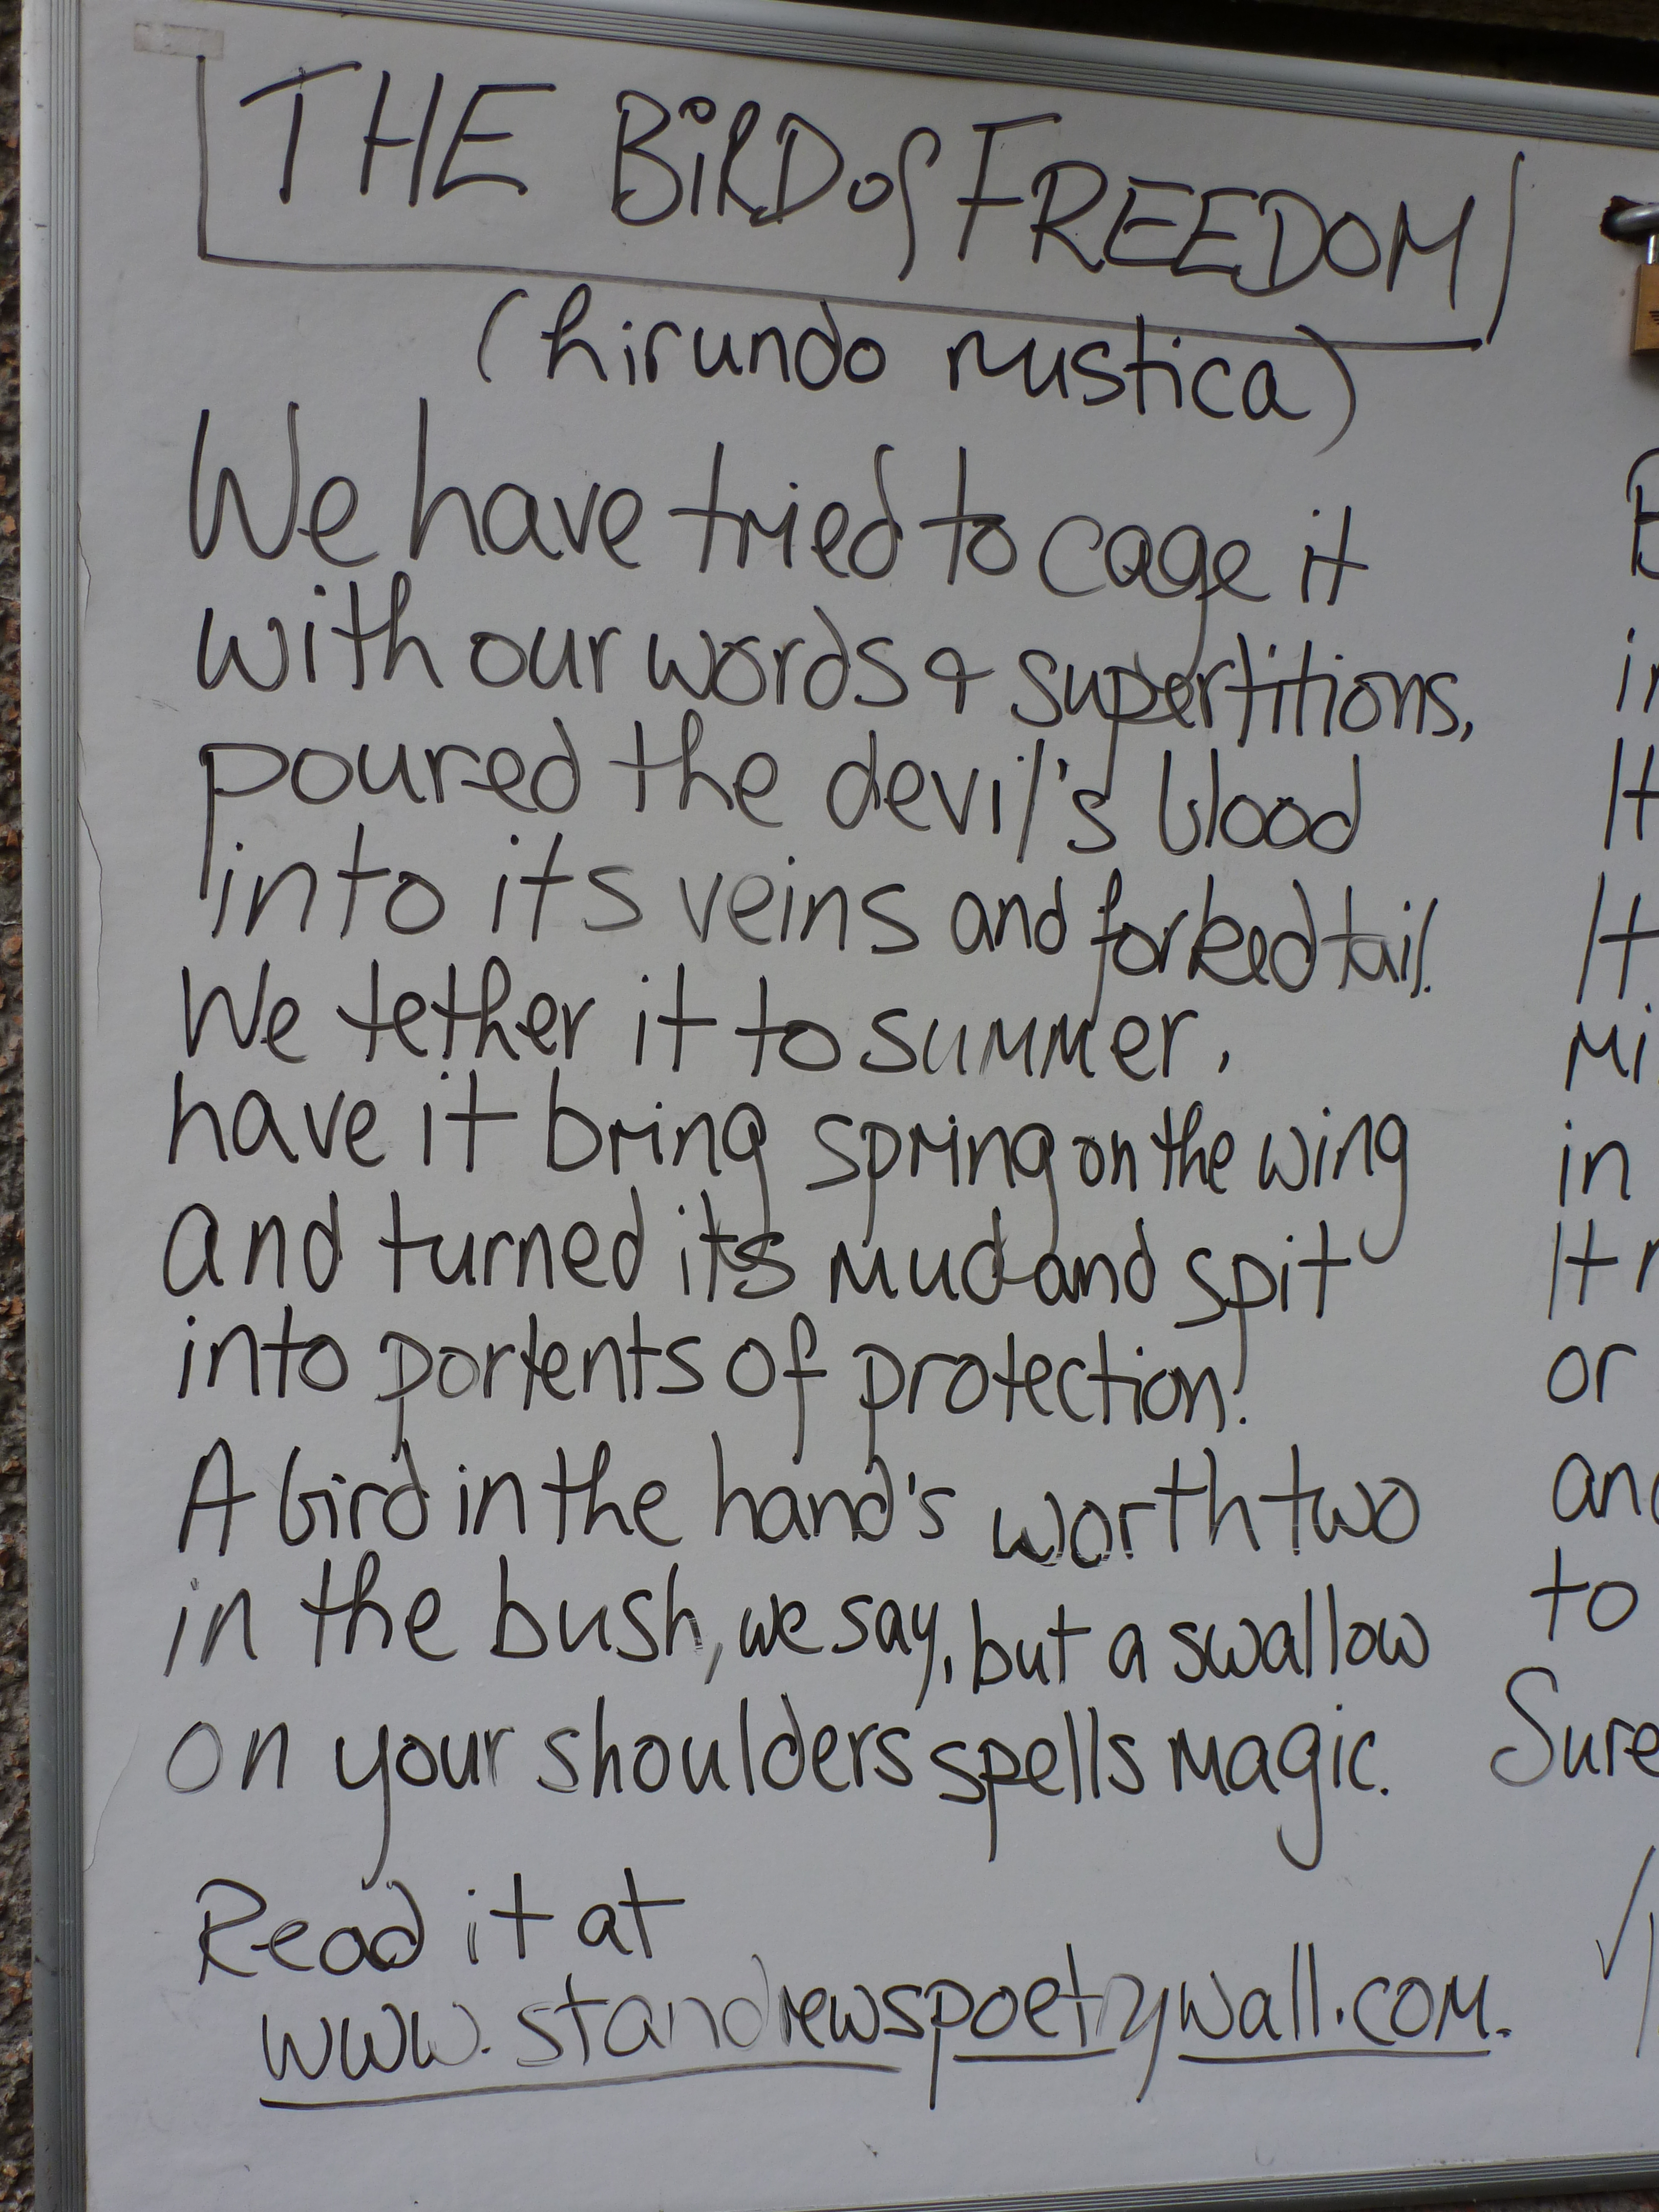 THE BiRD of FREEDOM
(hirundo rustica)
We have tried to cage it
with our words & supertitions,
poured the devil's blood
into its veins and forked tail.
We tether it to summer,
have it bring spring on the wing
and turned its mud and spit
into portents of protection.
A bird in the hand's worth two
in the bush, we say, but a swallow
on your shoulders spells magic.
Read it at
www.standrewspoetrywall.com.
It
It
in
It
or
to
Sure